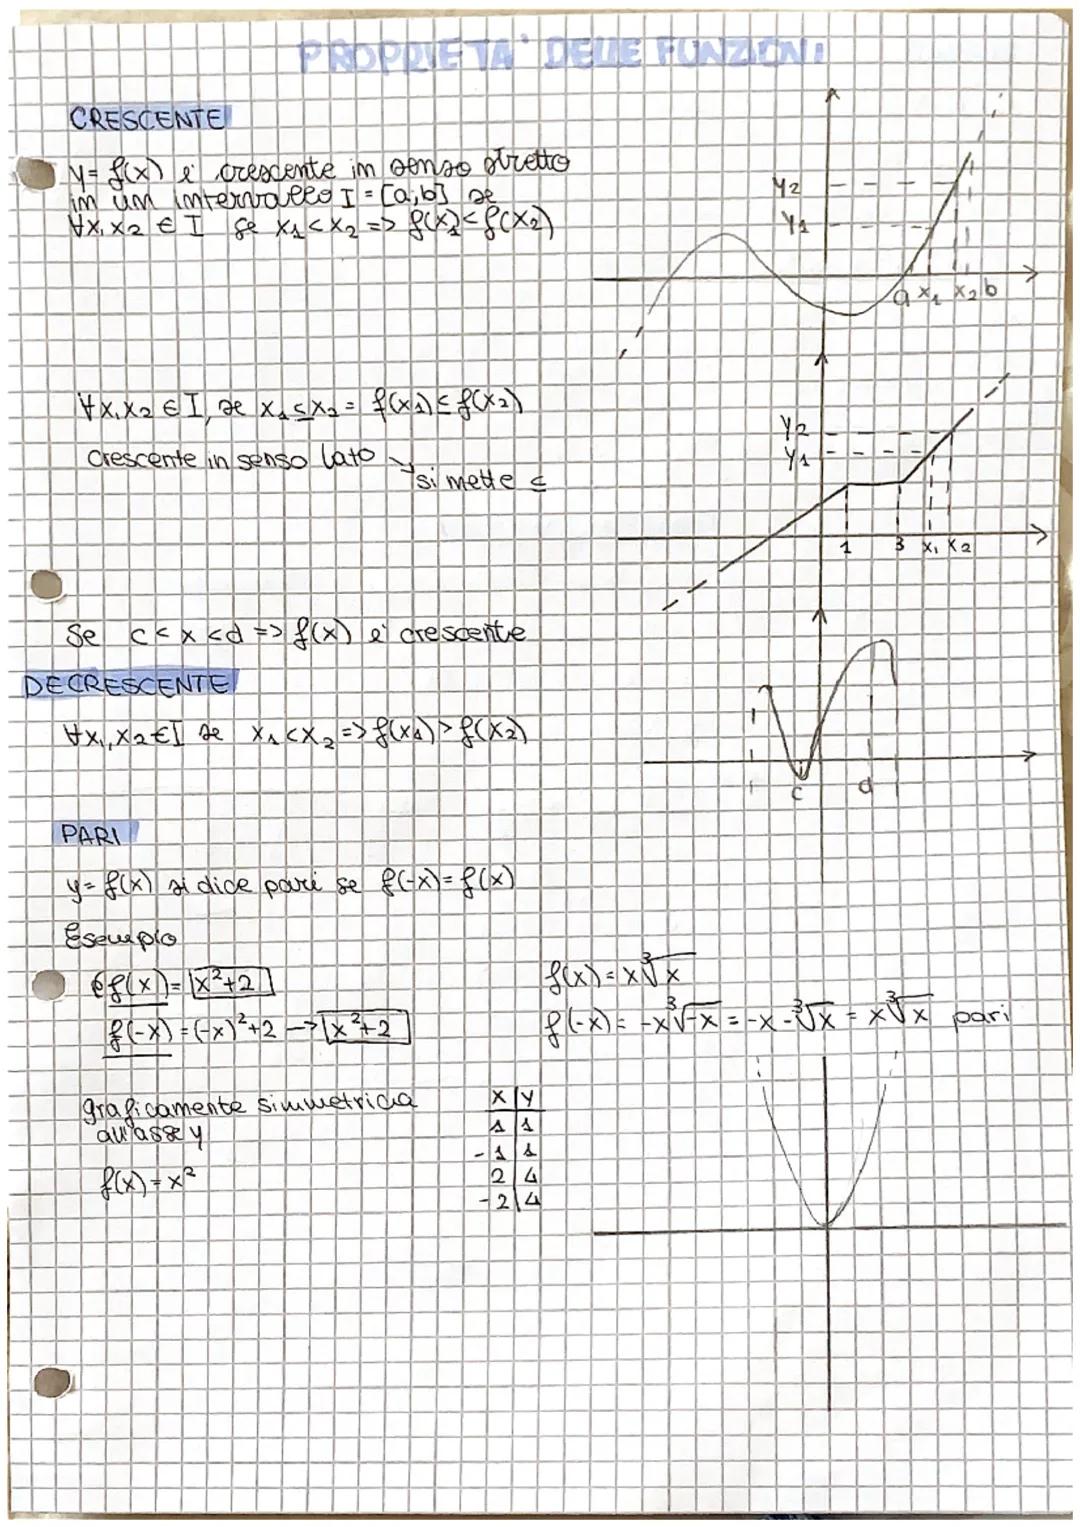 PROPRIETA' DELLE FUNZIONI
CRESCENTE
y = f(x) e' crescente in senso stretto
in un intervallo I = [a;b] se
∀x₁x₂ ∈ I se x₁ < x₂ => f(x₁) < f(x₂)
y₂
y₁
a x₁ x₂ b
∀x₁x₂ ∈ I, se x₁ ≤ x₂ = f(x₁) ≤ f(x₂)
crescente in senso lato
si mette ≤
y₂
y₁
1 3 x₁ x₂
Se c < x < d => f(x) e' crescente
DECRESCENTE
∀x₁,x₂ ∈ I se x₁ < x₂ => f(x₁) > f(x₂)
c d
PARI
y = f(x) si dice pari se f(-x) = f(x)
Esempio
f(x) = x²+2
f(-x) = (-x)²+2 → x²+2
f(x) = x∛x
f(-x) = -x∛-x = -x -∛x = x∛x pari
graficamente simmetrica
all'asse y
f(x) = x²
x | y
1 | 1
-1 | 1
2 | 4
-2 | 4